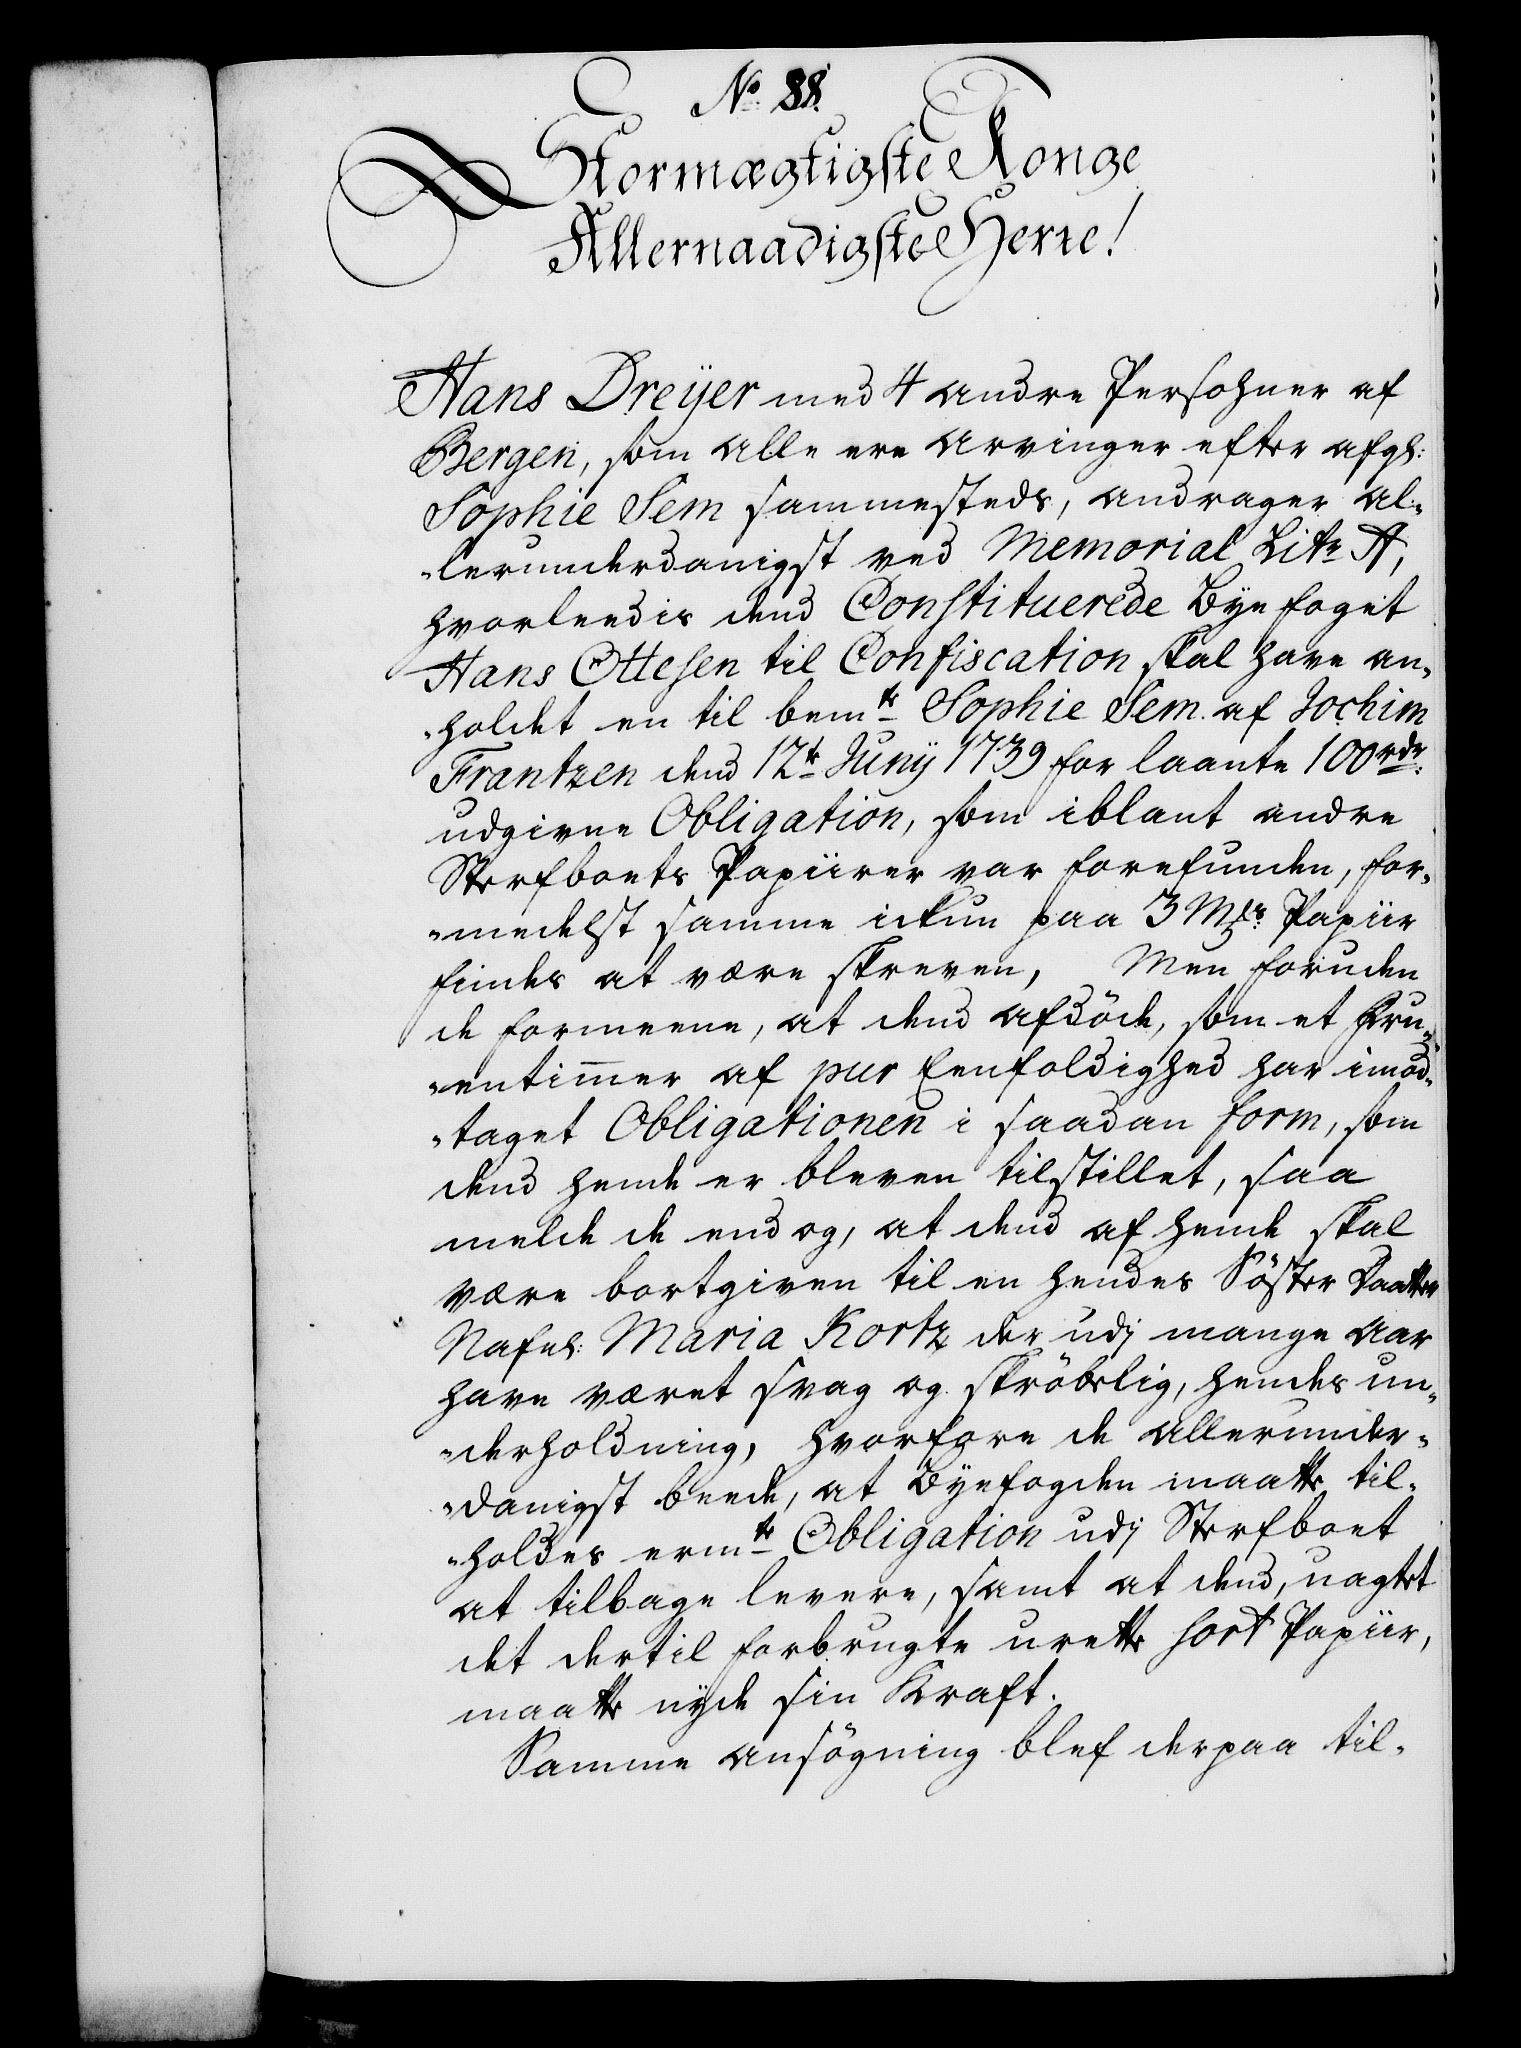 No 88.
Stormægtigste Konge
Allernaadigste Herre!
Hans Dreÿer med 4 andre Persohner af
Bergen, som alle ere Arvinger efter afgl:
Sophie Sem sammesteds, andrager al-
-lerunderdanigst ved Memorial Litr A,
hvorleedis dend Constituerede Byefoget
Hans Ottesen til Confiscation skal have an-
-holdt en til bemte Sophie Sem af Jochim
Frantzen dend 12te Junÿ 1739 for laante 100 rdr:
udgivne Obligation, som iblant andre
Sterfboets Papiirer var forefunden, for-
-medelst samme ickun paa 3 Mks: Papiir
findes at være skreven, Men foruden
de formeene, at dend afdöde, som et Fru-
-entimer af pur Eenfoldighed har imod-
-taget Obligationen i saadan form, som
dend hende er bleven tilstillet, saa
melde de end og, at dend af hende skal
være bortgiven til en hendes Söster Daatter
Nafnl: Maria Kortz der udj mange Aar
have været svag og skröbelig, hendes un-
-derholdning, hvorfore de allerunder-
-danigst beede, at Byefogden maatte til-
-holdes ermte Obligation udj Sterfboet
at tilbage levere, samt at dend, uagtet
det dertil forbrugte urette sort Papiir,
maatte nÿde sin Kraft.
Samme ansögning blef derpaa til-